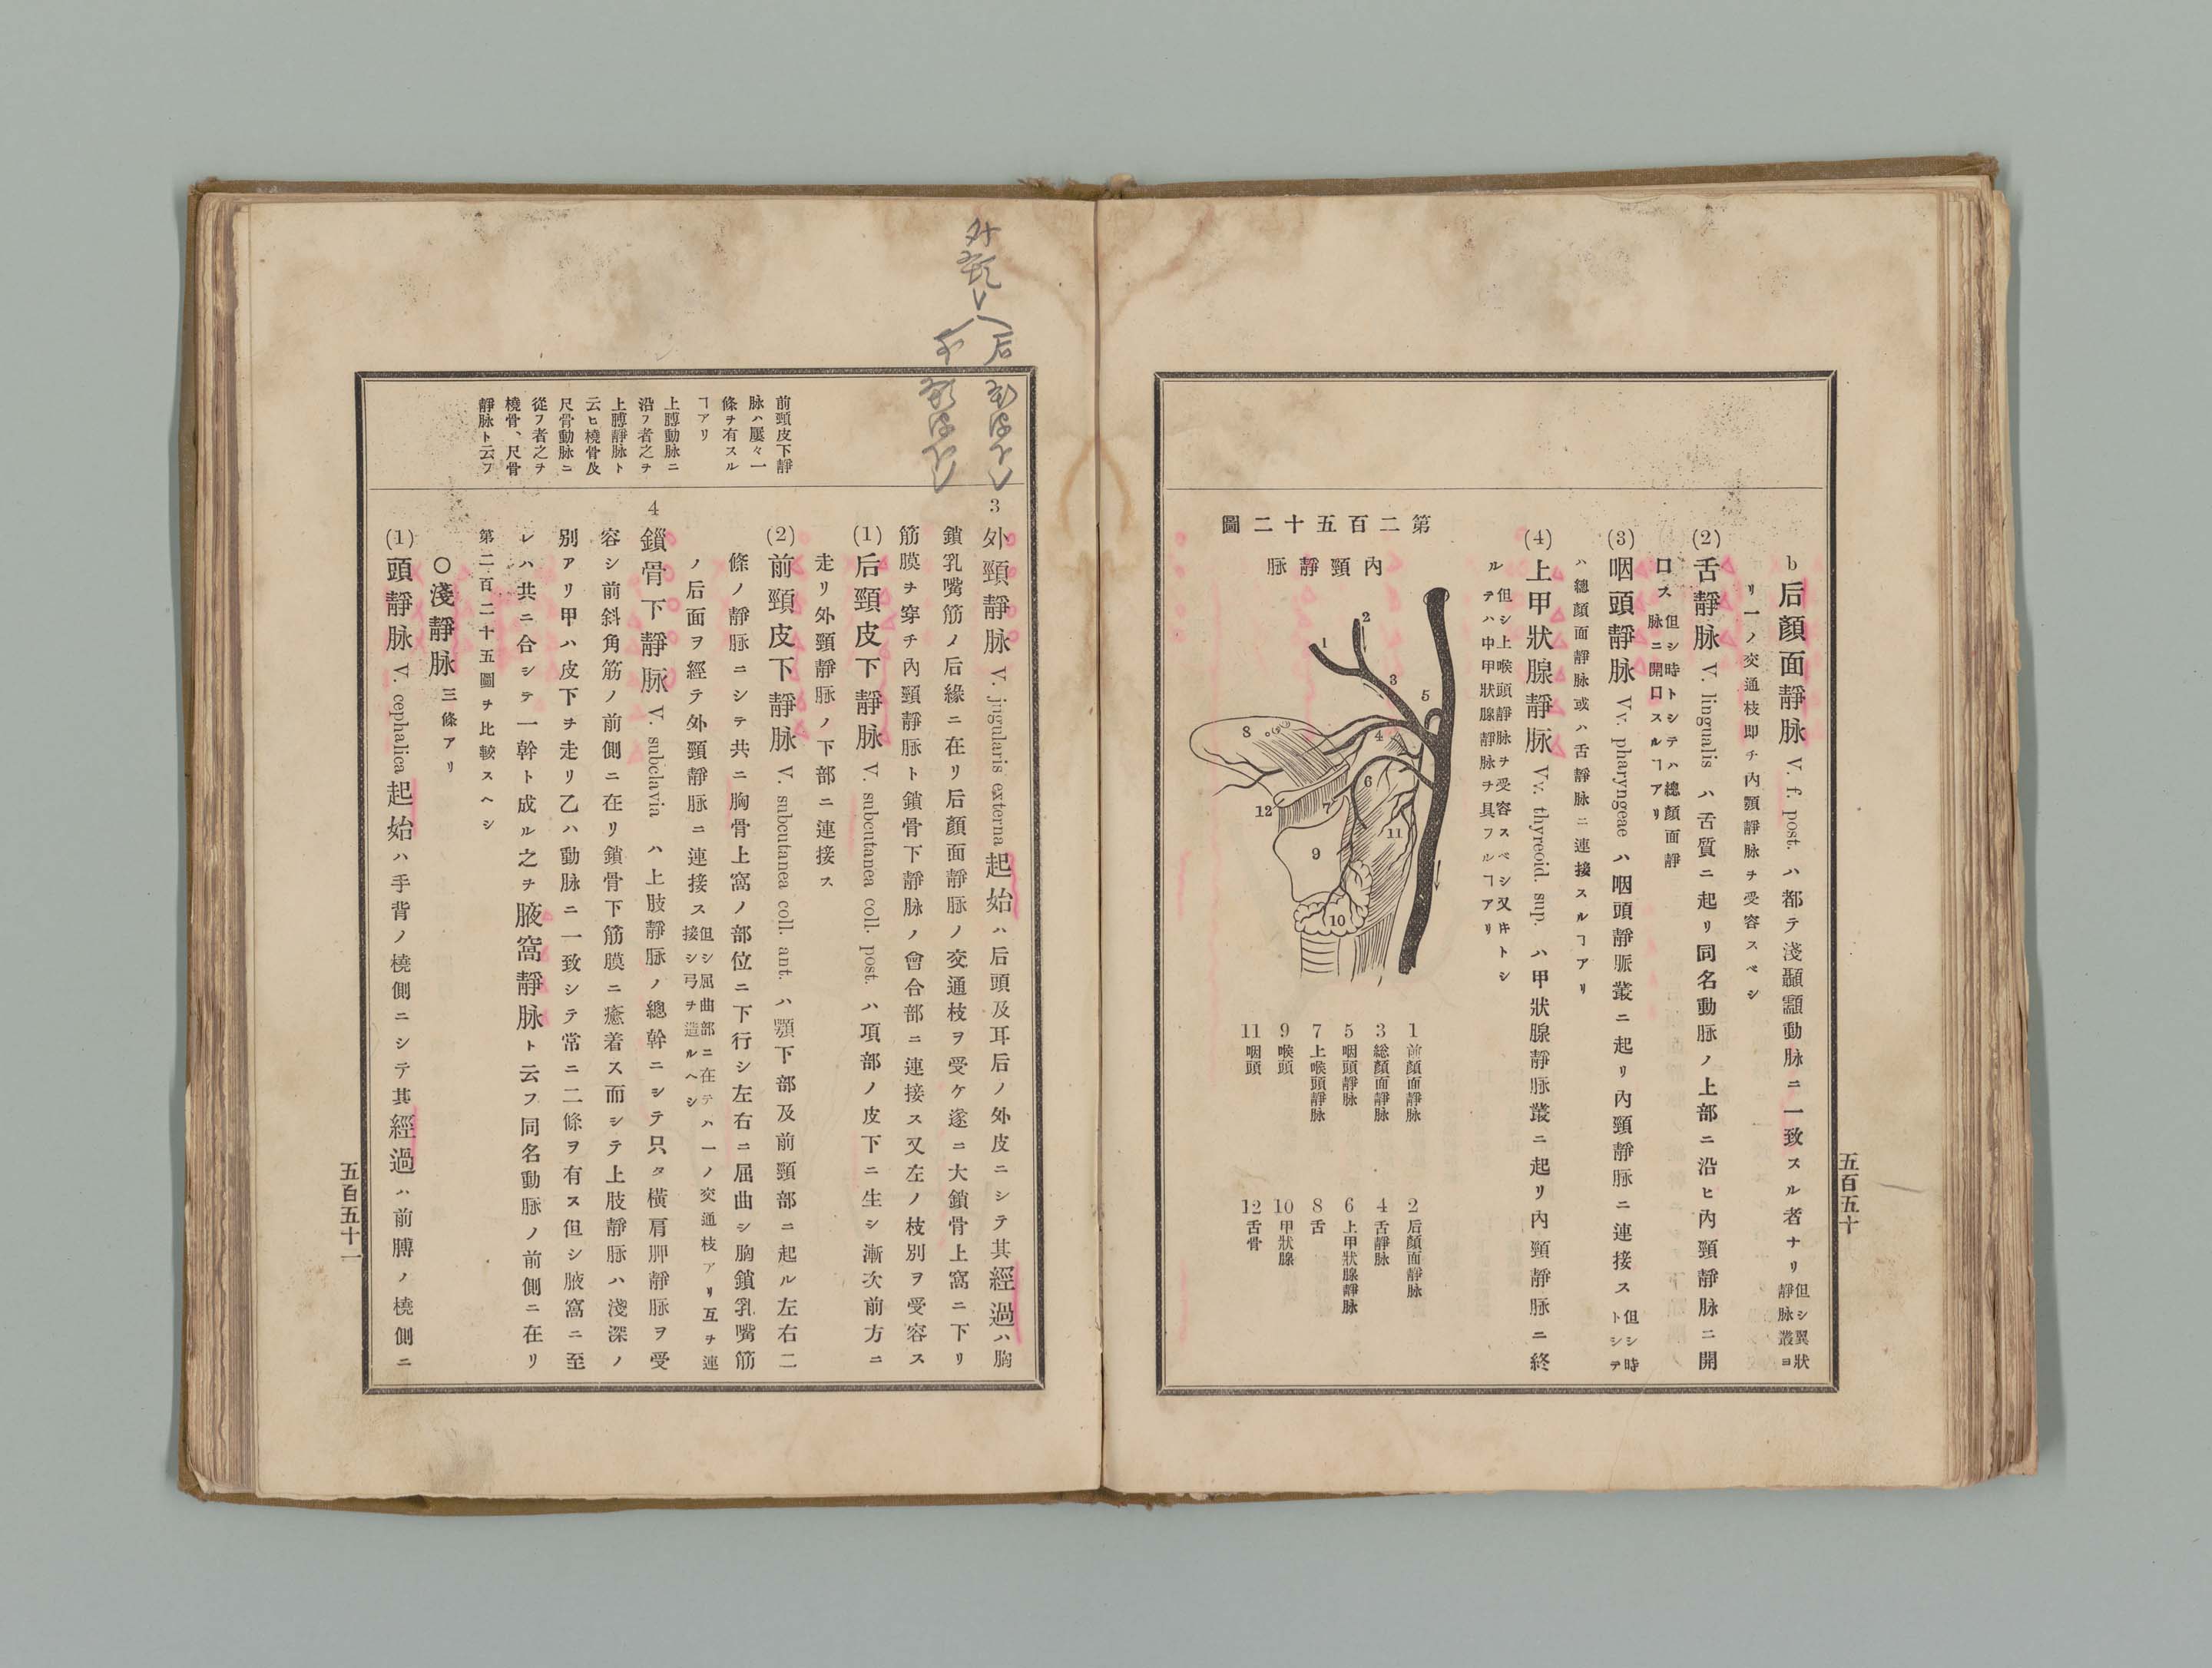 五百五十
b 后顏面靜脉 V. f. post. ハ都テ淺顳顬動脉ニ一致スル者ナリ 但シ翼狀靜脉叢ヨ
リ一ノ交通枝即チ内顎靜脉ヲ受容スベシ
(2) 舌靜脉 V. lingualis ハ舌質ニ起リ同名動脉ノ上部ニ沿ヒ内頸靜脉ニ開
口ス 但シ時トシテハ總顏面靜脉ニ開口スルヿアリ
(3) 咽頭靜脉 Vv. pharyngeae ハ咽頭靜脈叢ニ起リ内頸靜脉ニ連接ス 但シ時トシテ
ハ總顏面靜脉或ハ舌靜脉ニ連接スルヿアリ
(4) 上甲狀腺靜脉 Vv. thyreoid. sup. ハ甲狀腺靜脉叢ニ起リ内頸靜脉ニ終
ル 但シ上喉頭靜脉ヲ受容スベシ又𪜈トシテハ中甲狀腺靜脉ヲ具フルヿアリ
第二百五十二圖
内頸靜脉
1
2
3
4
5
6
7
8
9
10
11
12
1 前顏面靜脉
2 后顏面靜脉
3 総顏面靜脉
4 舌靜脉
5 咽頭靜脉
6 上甲狀腺靜脉
7 上喉頭靜脉
8 舌
9 喉頭
10 甲狀腺
11 咽頭
12 舌骨
外頸
后
前頸皮下靜
脉ハ屢々一
條ヲ有スル
ヿアリ
上膊動脉ニ
沿フ者之ヲ
上膊靜脉ト
云ヒ橈骨及
尺骨動脉ニ
從フ者之ヲ
橈骨、尺骨
靜脉ト云フ
3 外頸靜脉 V. jugularis externa 起始ハ后頭及耳后ノ外皮ニシテ其經過ハ胸
鎖乳嘴筋ノ后緣ニ在リ后顏面靜脉ノ交通枝ヲ受ケ遂ニ大鎖骨上窩ニ下リ
筋膜ヲ穿チ内頸靜脉ト鎖骨下靜脉ノ會合部ニ連接ス又左ノ枝別ヲ受容ス
(1) 后頸皮下靜脉 V. subcutanea coll. post. ハ項部ノ皮下ニ生シ漸次前方ニ
走リ外頸靜脉ノ下部ニ連接ス
(2) 前頸皮下靜脉 V. subcutanea coll. ant. ハ顎下部及前頸部ニ起ル左右二
條ノ靜脉ニシテ共ニ胸骨上窩ノ部位ニ下行シ左右ニ屈曲シ胸鎖乳嘴筋
ノ后面ヲ經テ外頸靜脉ニ連接ス 但シ屈曲部ニ在テハ一ノ交通枝アリ互ヲ連接シ弓ヲ造ルヘシ
4 鎖骨下靜脉 V. subclavia ハ上肢靜脉ノ總幹ニシテ只タ橫肩胛靜脉ヲ受
容シ前斜角筋ノ前側ニ在リ鎖骨下筋膜ニ癒着ス而シテ上肢靜脉ハ淺深ノ
別アリ甲ハ皮下ヲ走リ乙ハ動脉ニ一致シテ常ニ二條ヲ有ス但シ腋窩ニ至
レハ共ニ合シテ一幹ト成ル之ヲ腋窩靜脉ト云フ同名動脉ノ前側ニ在リ
第二百二十五圖ヲ比較スヘシ
〇淺靜脉 三條アリ
(1) 頭靜脉 V. cephalica 起始ハ手背ノ橈側ニシテ其經過ハ前膊ノ橈側ニ
五百五十一